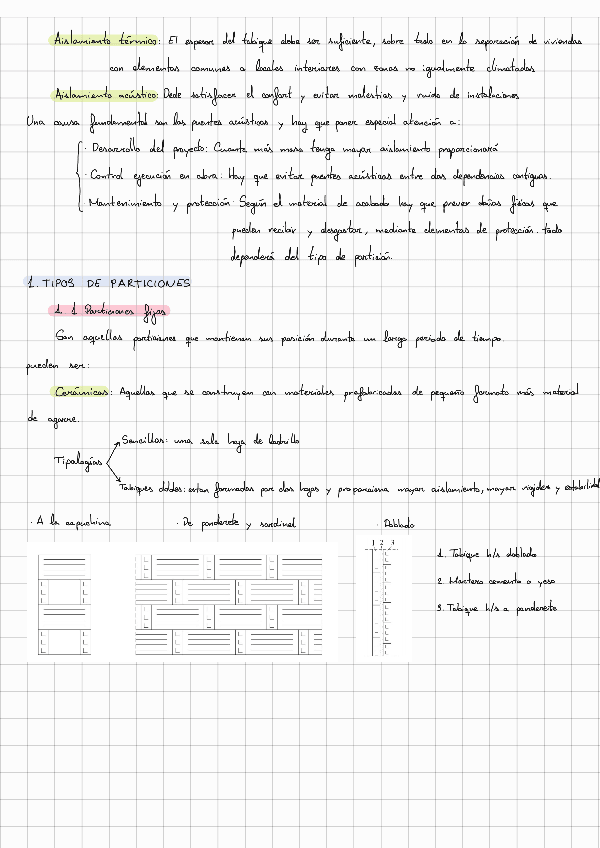 Aislamiento térmico: El espesor del tabique debe ser suficiente, sobre todo en la separación de viviendas
con elementos comunes o locales interiores con zonas no igualmente climatadas
Aislamiento acústico: Debe satisfacer el confort y evitar molestias y ruido de instalaciones
Una causa fundamental son los puentes acústicos y hay que poner especial atención a:
· Desarrollo del proyecto: Cuanta más masa tenga mayor aislamiento proporcionará
· Control ejecución en obra: Hay que evitar puentes acústicos entre dos dependencias contiguas.
· Mantenimiento y protección: Según el material de acabado hay que prever daños físicos que
puedan recibir y desgastar, mediante elementos de protección. todo
dependerá del tipo de partición.
1. TIPOS DE PARTICIONES
1. 1 Particiones fijas
Son aquellas particiones que mantienen sus posición durante un largo periodo de tiempo.
pueden ser:
Cerámicas: Aquellas que se construyen con materiales prefabricados de pequeño formato más material
de agarre.
Sencillos: una sola hoja de ladrillo
Tipologías
Tabiques dobles: estan formadas por dos hojas y proporciona mayor aislamiento, mayor rigidez y estabilidad
· A la capuchina
· De panderete y sardinel
· Doblado
1 2 3
1. Tabique h/s doblado
2. Mortero cemento o yeso
3. Tabique h/s a panderete